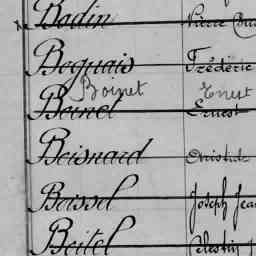 Bodin Pierre
Boquais Frédéric
Boinet Ernest
Boinet Ernest
Boisnard Aristide
Boissel Joseph Jean
Boitel Célestin